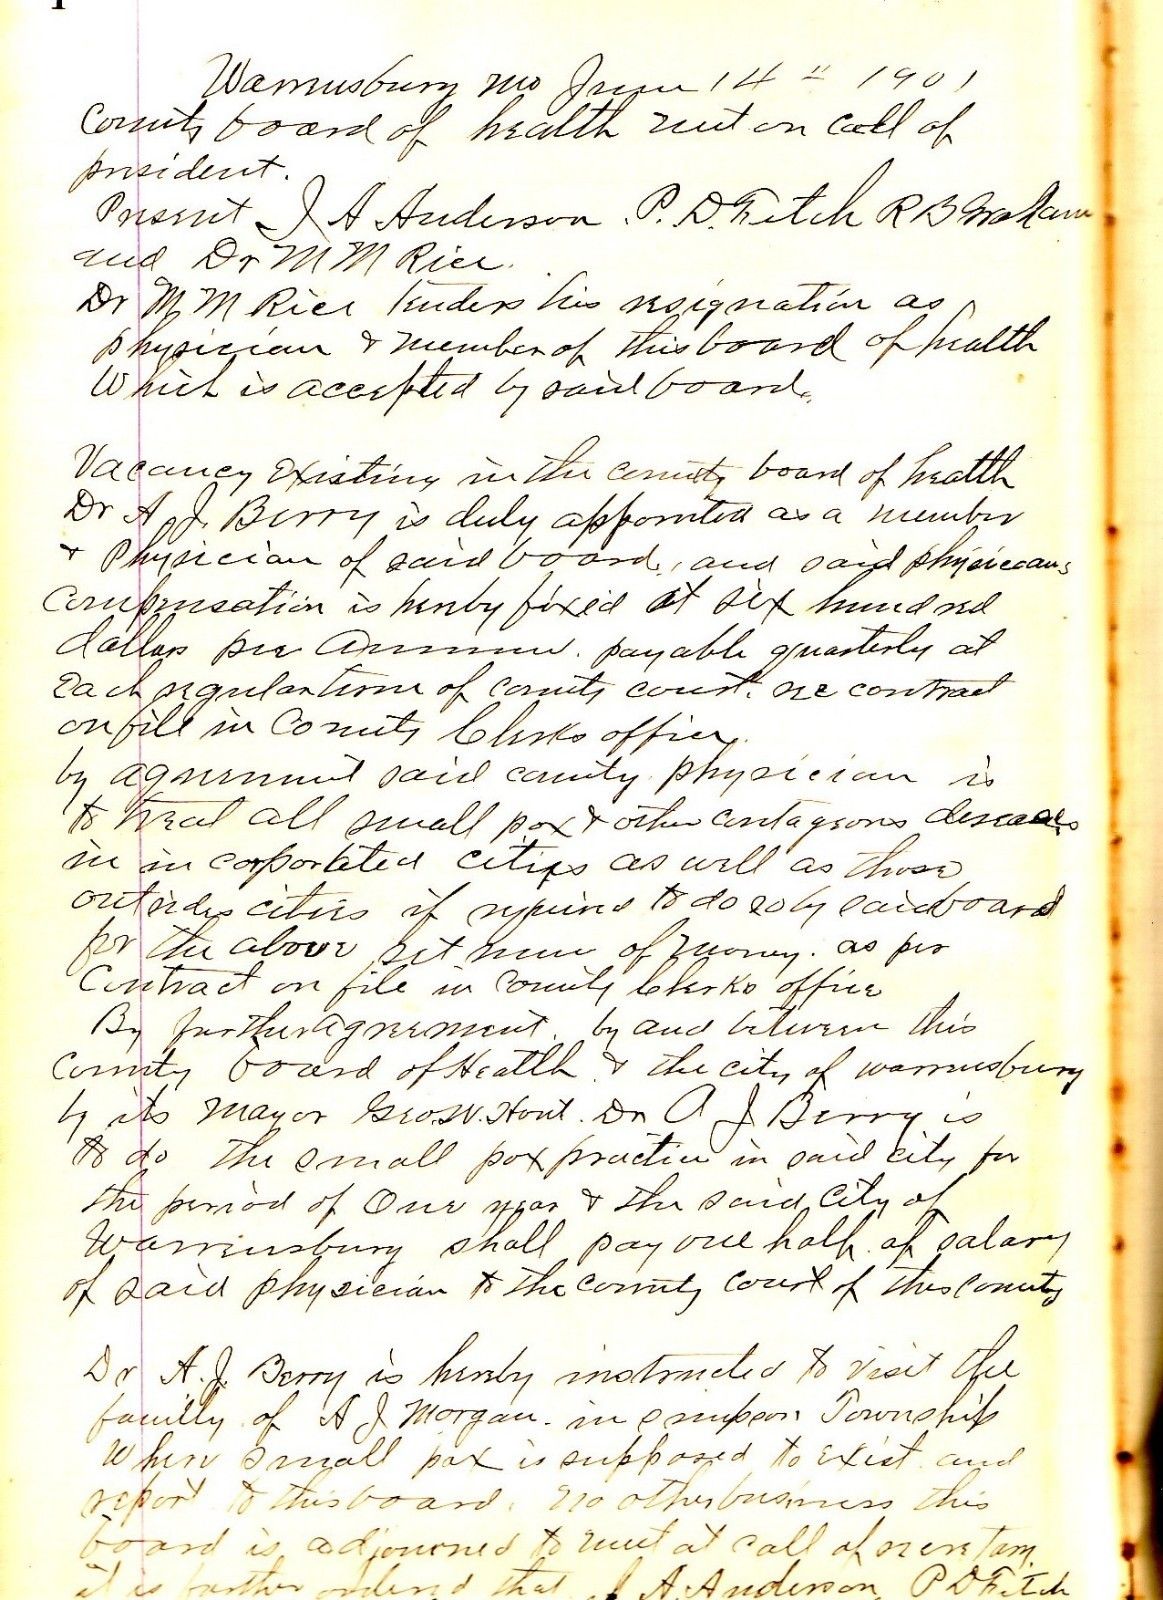 Warrensburg Mo June 14" 1901
County board of health met on call of
president.
Present J A Anderson P. D. Fitch R B Graham
and Dr M M Rice.
Dr M M Rice tenders his resignation as
physician & member of this board of health
Which is accepted by said board.
Vacancy Existing in the county board of health
Dr A J. Berry is duly appointed as a member
& Physician of said board, and said physicians
Compensation is hereby fixed at six hundred
dollars per Annum. payable quarterly at
Each regular term of county court. see contract
on file in County Clerks office.
by agreement said county physician is
to treat all small pox & other contageons diseases
in in corporated cities as well as those
outsides cities if required to do so by said board
for the above set sum of money. as per
Contract on file in County Clerks office
By further agreement. by and between this
County board of Health & the city of warrensburg
by its Mayor Geo W. Hout. Dr A J Berry is
to do the small pox practice in said city for
the period of One year & the said City of
Warrensburg shall pay one half of salary
of said physician to the county court of this county
Dr A. J. Berry is hereby instructed to visit the
family of A J Morgan. in simpson Township
Where small pox is supposed to exist and
report to this board. no other business this
board is adjourned to meet at call of secretary
it is further ordered that J A. Anderson, P D Fitch